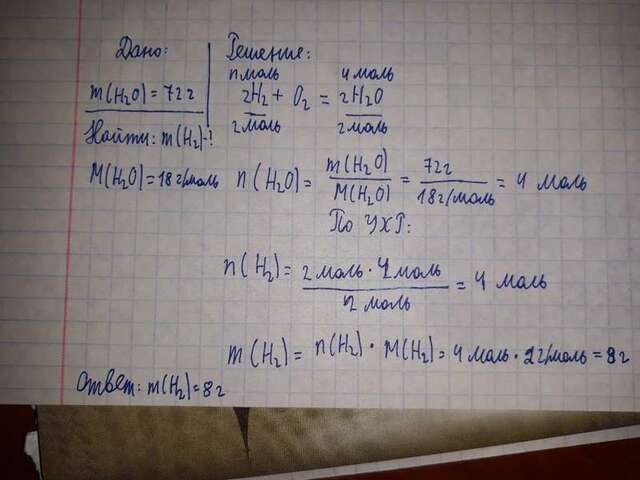 Дано:
m(H₂O) = 72 г
Найти: m(H₂)-?
M(H₂O) = 18 г/моль
Решение:
n моль 4 моль
2H₂ + O₂ = 2H₂O
2 моль 2 моль
n(H₂O) = m(H₂O)/M(H₂O) = 72 г/18 г/моль = 4 моль
По УХР:
n(H₂) = 2 моль · 4 моль/2 моль = 4 моль
m(H₂) = n(H₂) · M(H₂) = 4 моль · 2 г/моль = 8 г
Ответ: m(H₂) = 8 г